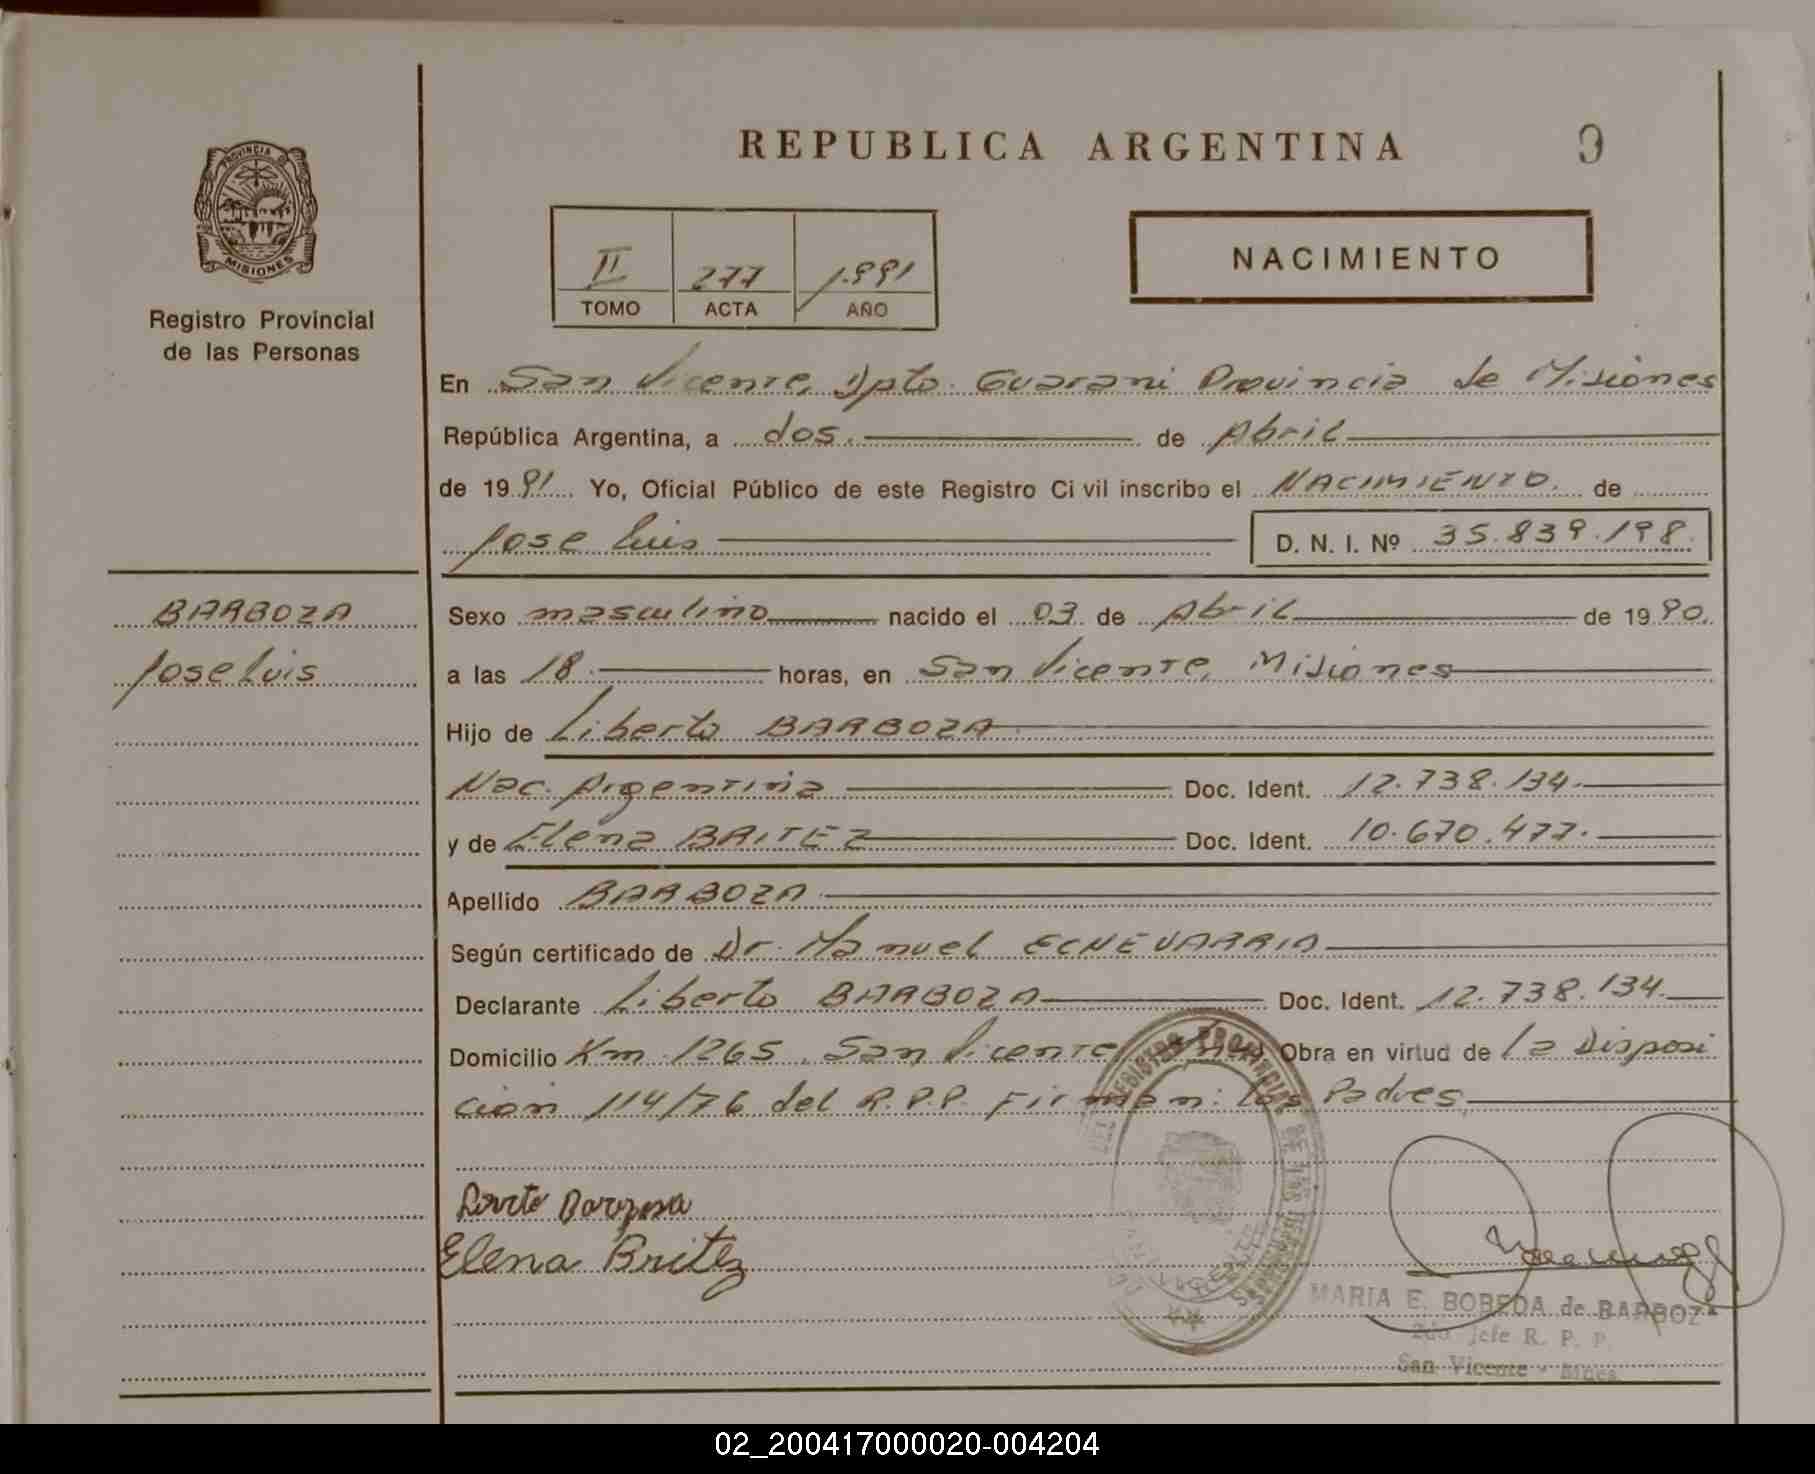 REPUBLICA ARGENTINA 9
PROVINCIA DE
MISIONES
Registro Provincial
de las Personas
II 277 1.991
TOMO ACTA AÑO
NACIMIENTO
En San Vicente, Dpto. Guarani Provincia de Misiones
República Argentina, a dos. de Abril
de 1991. Yo, Oficial Público de este Registro Ci vil inscribo el NACIMIENTO. de
Jose Luis D. N. I. Nº 35.839.198.
BARBOZA
Jose Luis
Sexo masculino nacido el 03 de Abril de 1990.
a las 18. horas, en San Vicente, Misiones
Hijo de Liberto BARBOZA
Nac. Argentina Doc. Ident. 12.738.134.
y de Elena BRITEZ Doc. Ident. 10.670.477.
Apellido BARBOZA
Según certificado de Dr. Manuel ECHEVARRIA
Declarante Liberto BARBOZA Doc. Ident. 12.738.134.
Domicilio Km. 1265, San Vicente, Mnes Obra en virtud de la Disposi
cion 114/76 del R.P.P. Firman: los Padres
REGISTRO PROVINCIAL DE LAS PERSONAS
Elena Britez
MARIA E. BOBEDA de BARBOZA
2do Jefe R. P. P.
San Vicente - Mnes
02_200417000020-004204